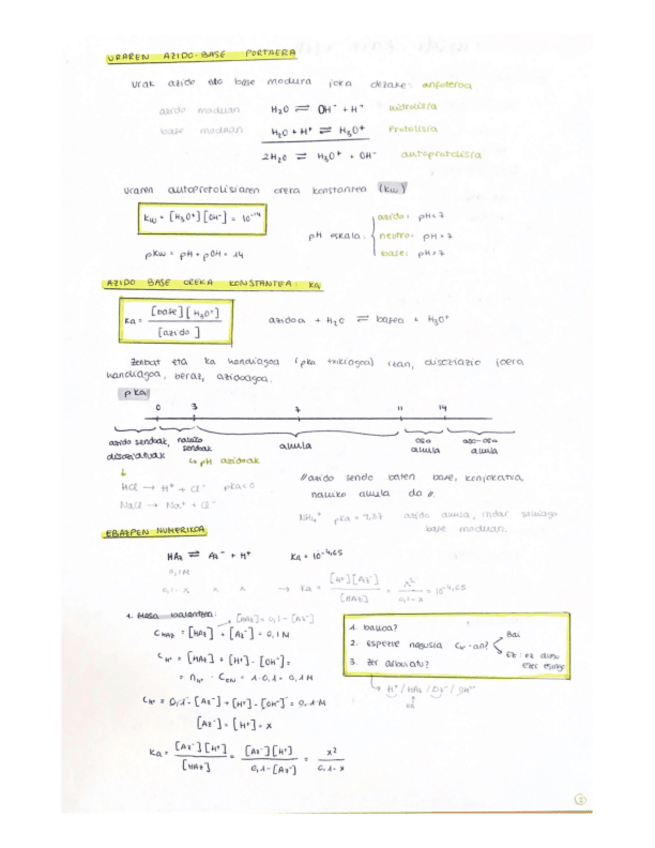 URAREN AZIDO-BASE PORTAERA
Urak azido edo base modura joka dezake: anfoteroa
azido moduan H₂O ⇌ OH⁻ + H⁺ hidrolisia
base moduan H₂O + H⁺ ⇌ H₃O⁺ Protolisia
2H₂O ⇌ H₃O⁺ + OH⁻ autoprotolisia
Uraren autoprotolisiaren oreka konstantea (Kw)
Kw = [H₃O⁺][OH⁻] = 10⁻¹⁴
pH eskala:
azido: pH<7
neutro: pH=7
base: pH>7
pKw = pH + pOH = 14
AZIDO BASE OREKA KONSTANTEA: Ka
Ka = [base][H₃O⁺] / [azido]
azidoa + H₂O ⇌ basea + H₃O⁺
Zenbat eta Ka handiagoa (pka txikiagoa) izan, disoziazio joera
handiagoa, beraz, azidoagoa.
pKa
0 3 7 11 14
azido sendoak, disoziatuak
nahiko sendoak
ahula
oso ahula
oso-oso ahula
↳ pH azidoak
HCl → H⁺ + Cl⁻ pka<0
NaCl → Na⁺ + Cl⁻
//azido sendo baten base, konjokatua,
nahiko ahula da //.
NH₄⁺ pka = azido ahula, indar
base moduan.
EBAZPEN NUMERIKOA
HAz ⇌ Az⁻ + H⁺ Ka = 10⁻⁴,⁶⁵
0,1M
0,1-x x x → Ka = [H⁺][Az⁻] / [HAz] = x² / 0,1-x = 10⁻⁴,⁶⁵
1. Masa balantzea: [HAz] = 0,1 - [Az⁻]
C HAz = [HAz] + [Az⁻] = 0,1M
C H⁺ = [HAz] + [H⁺] - [OH⁻] =
= n H⁺ · C = 1·0,1 = 0,1M
C H⁺ = 0,1 - [Az⁻] + [H⁺] - [OH⁻] = 0,1M
[Az⁻] = [H⁺] = x
Ka = [Az⁻][H⁺] / [HAz] = [Az⁻][H⁺] / 0,1-[Az⁻] = x² / 0,1-x
1. basoa?
2. espezie nagusia Cw-an?
Bai
Ez: ez
3. Zer
↳ H⁺/HAz/